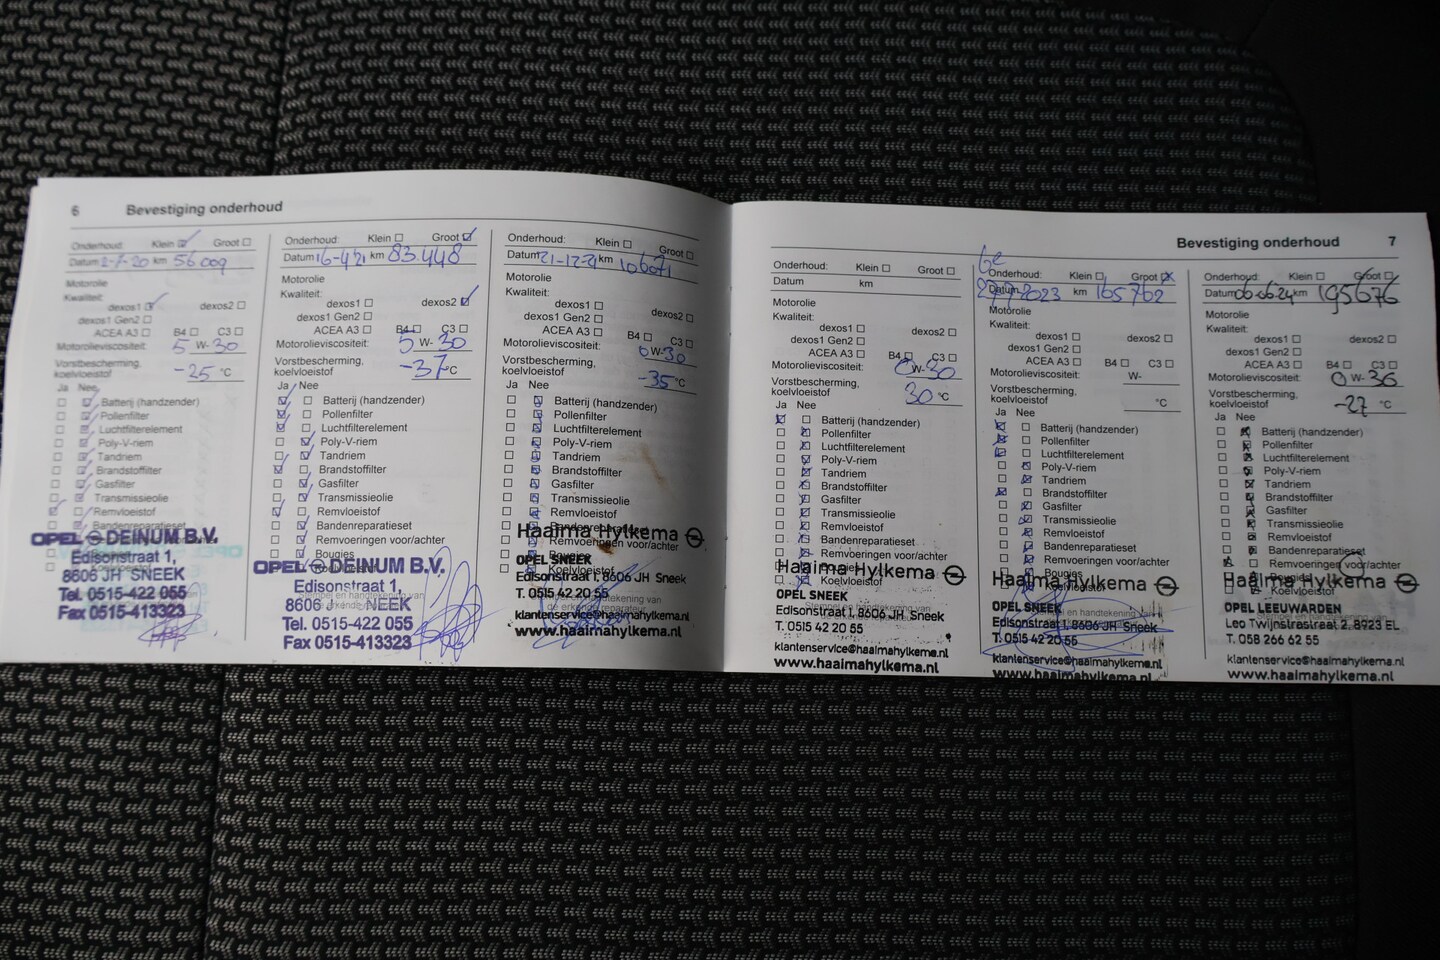 6 Bevestiging onderhoud
Onderhoud: Klein Groot
Datum 2-7-20 km 56009
Motorolie
Kwaliteit:
dexos1 dexos2
dexos1 Gen2
ACEA A3 B4 C3
Motorolieviscositeit: 5 W-30
Vorstbescherming,
koelvloeistof -25 °C
Ja Nee
Batterij (handzender)
Pollenfilter
Luchtfilterelement
Poly-V-riem
Tandriem
Brandstoffilter
Gasfilter
Transmissieolie
Remvloeistof
Bandenreparatieset
OPEL DEINUM B.V.
Edisonstraat 1,
8606 JH SNEEK
Tel. 0515-422 055
Fax 0515-413323
Onderhoud: Klein Groot
Datum 16-4-21 km 83.448
Motorolie
Kwaliteit:
dexos1 dexos2
dexos1 Gen2
ACEA A3 B4 C3
Motorolieviscositeit: 5 W-30
Vorstbescherming,
koelvloeistof -37 °C
Ja Nee
Batterij (handzender)
Pollenfilter
Luchtfilterelement
Poly-V-riem
Tandriem
Brandstoffilter
Gasfilter
Transmissieolie
Remvloeistof
Bandenreparatieset
Remvoeringen voor/achter
Bougies
OPEL DEINUM B.V.
Edisonstraat 1,
8606 NEEK
Tel. 0515-422 055
Fax 0515-413323
Onderhoud: Klein Groot
Datum 21-12-21 km 106071
Motorolie
Kwaliteit:
dexos1 dexos2
dexos1 Gen2
ACEA A3 B4 C3
Motorolieviscositeit: 0 W-30
Vorstbescherming,
koelvloeistof -35 °C
Ja Nee
Batterij (handzender)
Pollenfilter
Luchtfilterelement
Poly-V-riem
Tandriem
Brandstoffilter
Gasfilter
Transmissieolie
Remvloeistof
Bandenreparatieset
Haaima Hylkema
Remvoeringen voor/achter
Bougies
OPEL SNEEK
Koelvloeistof
Edisonstraat 1, 8606 JH Sneek
T. 0515 42 20 55
klantenservice@haaimahylkema.nl
www.haaimahylkema.nl
Bevestiging onderhoud 7
Onderhoud: Klein Groot
Datum km
Motorolie
Kwaliteit:
dexos1 dexos2
dexos1 Gen2
ACEA A3 B4 C3
Motorolieviscositeit: 0 W-30
Vorstbescherming,
koelvloeistof 30 °C
Ja Nee
Batterij (handzender)
Pollenfilter
Luchtfilterelement
Poly-V-riem
Tandriem
Brandstoffilter
Gasfilter
Transmissieolie
Remvloeistof
Bandenreparatieset
Remvoeringen voor/achter
Haaima Hylkema
Koelvloeistof
OPEL SNEEK
Stempel en handtekening van
Edisonstraat 1, 8606 JH Sneek
T. 0515 42 20 55
klantenservice@haaimahylkema.nl
www.haaimahylkema.nl
Onderhoud: Klein Groot
Datum 2023 km 165762
Motorolie
Kwaliteit:
dexos1 dexos2
dexos1 Gen2
ACEA A3 B4 C3
Motorolieviscositeit: W-
Vorstbescherming,
koelvloeistof °C
Ja Nee
Batterij (handzender)
Pollenfilter
Luchtfilterelement
Poly-V-riem
Tandriem
Brandstoffilter
Gasfilter
Transmissieolie
Remvloeistof
Bandenreparatieset
Remvoeringen voor/achter
Bougies
Haaima Hylkema
Koelvloeistof
OPEL SNEEK
Stempel en handtekening van
Edisonstraat 1, 8606 JH Sneek
T. 0515 42 20 55
klantenservice@haaimahylkema.nl
www.haaimahylkema.nl
Onderhoud: Klein Groot
Datum 06-06-24 km 195676
Motorolie
Kwaliteit:
dexos1 dexos2
dexos1 Gen2
ACEA A3 B4 C3
Motorolieviscositeit: 0 W-30
Vorstbescherming,
koelvloeistof -27 °C
Ja Nee
Batterij (handzender)
Pollenfilter
Luchtfilterelement
Poly-V-riem
Tandriem
Brandstoffilter
Gasfilter
Transmissieolie
Remvloeistof
Bandenreparatieset
Remvoeringen voor/achter
Haaima Hylkema
Koelvloeistof
OPEL LEEUWARDEN
Leo Twijnstrastraat 2, 8923 EL
T. 058 266 62 55
klantenservice@haaimahylkema.nl
www.haaimahylkema.nl